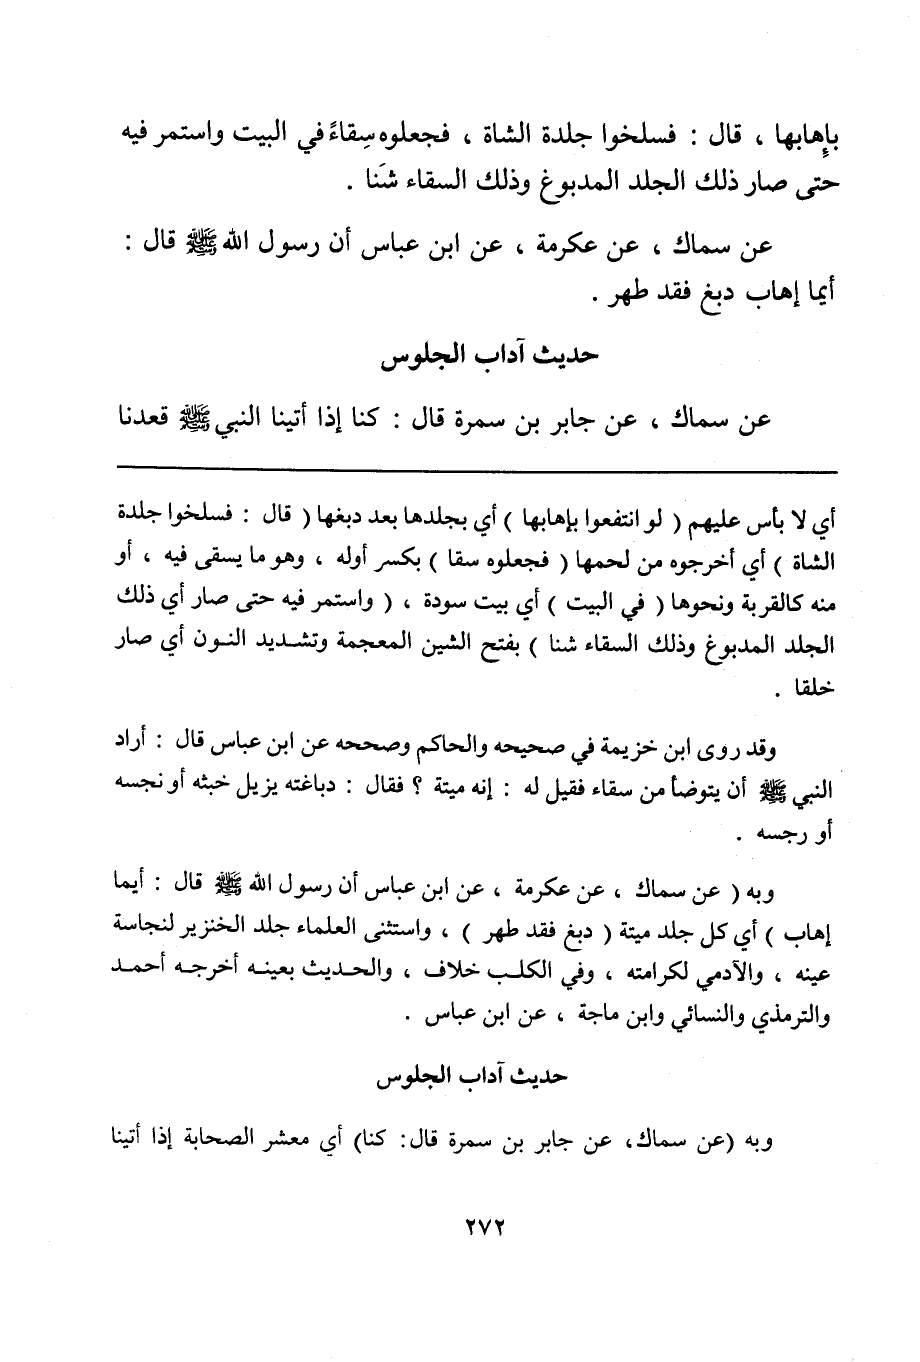 بإهابها ، قال : فسلخوا جلدة الشاة ، فجعلوه سِقاءً في البيت واستمر فيه
حتى صار ذلك الجلد المدبوغ وذلك السقاء شَنا .
عن سماك ، عن عكرمة ، عن ابن عباس أن رسول الله ﷺ قال :
أيما إهاب دبغ فقد طهر .
حديث آداب الجلوس
عن سماك ، عن جابر بن سمرة قال : كنا إذا أتينا النبي ﷺ قعدنا
أي لا بأس عليهم ( لو انتفعوا بإهابها ) أي بجلدها بعد دبغها ( قال : فسلخوا جلدة
الشاة ) أي أخرجوه من لحمها ( فجعلوه سقا ) بكسر أوله ، وهو ما يسقى فيه ، أو
منه كالقربة ونحوها ( في البيت ) أي بيت سودة ، ( واستمر فيه حتى صار أي ذلك
الجلد المدبوغ وذلك السقاء شنا ) بفتح الشين المعجمة وتشديد النون أي صار
خلقا .
وقد روى ابن خزيمة في صحيحه والحاكم وصححه عن ابن عباس قال : أراد
النبي ﷺ أن يتوضأ من سقاء فقيل له : إنه ميتة ؟ فقال : دباغته يزيل خبثه أو نجسه
أو رجسه .
وبه ( عن سماك ، عن عكرمة ، عن ابن عباس أن رسول الله ﷺ قال : أيما
إهاب ) أي كل جلد ميتة ( دبغ فقد طهر ) ، واستثنى العلماء جلد الخنزير لنجاسة
عينه ، والآدمي لكرامته ، وفي الكلب خلاف ، والحديث بعينه أخرجه أحمد
والترمذي والنسائي وابن ماجة ، عن ابن عباس .
حديث آداب الجلوس
وبه (عن سماك، عن جابر بن سمرة قال: كنا) أي معشر الصحابة إذا أتينا
٢٧٢